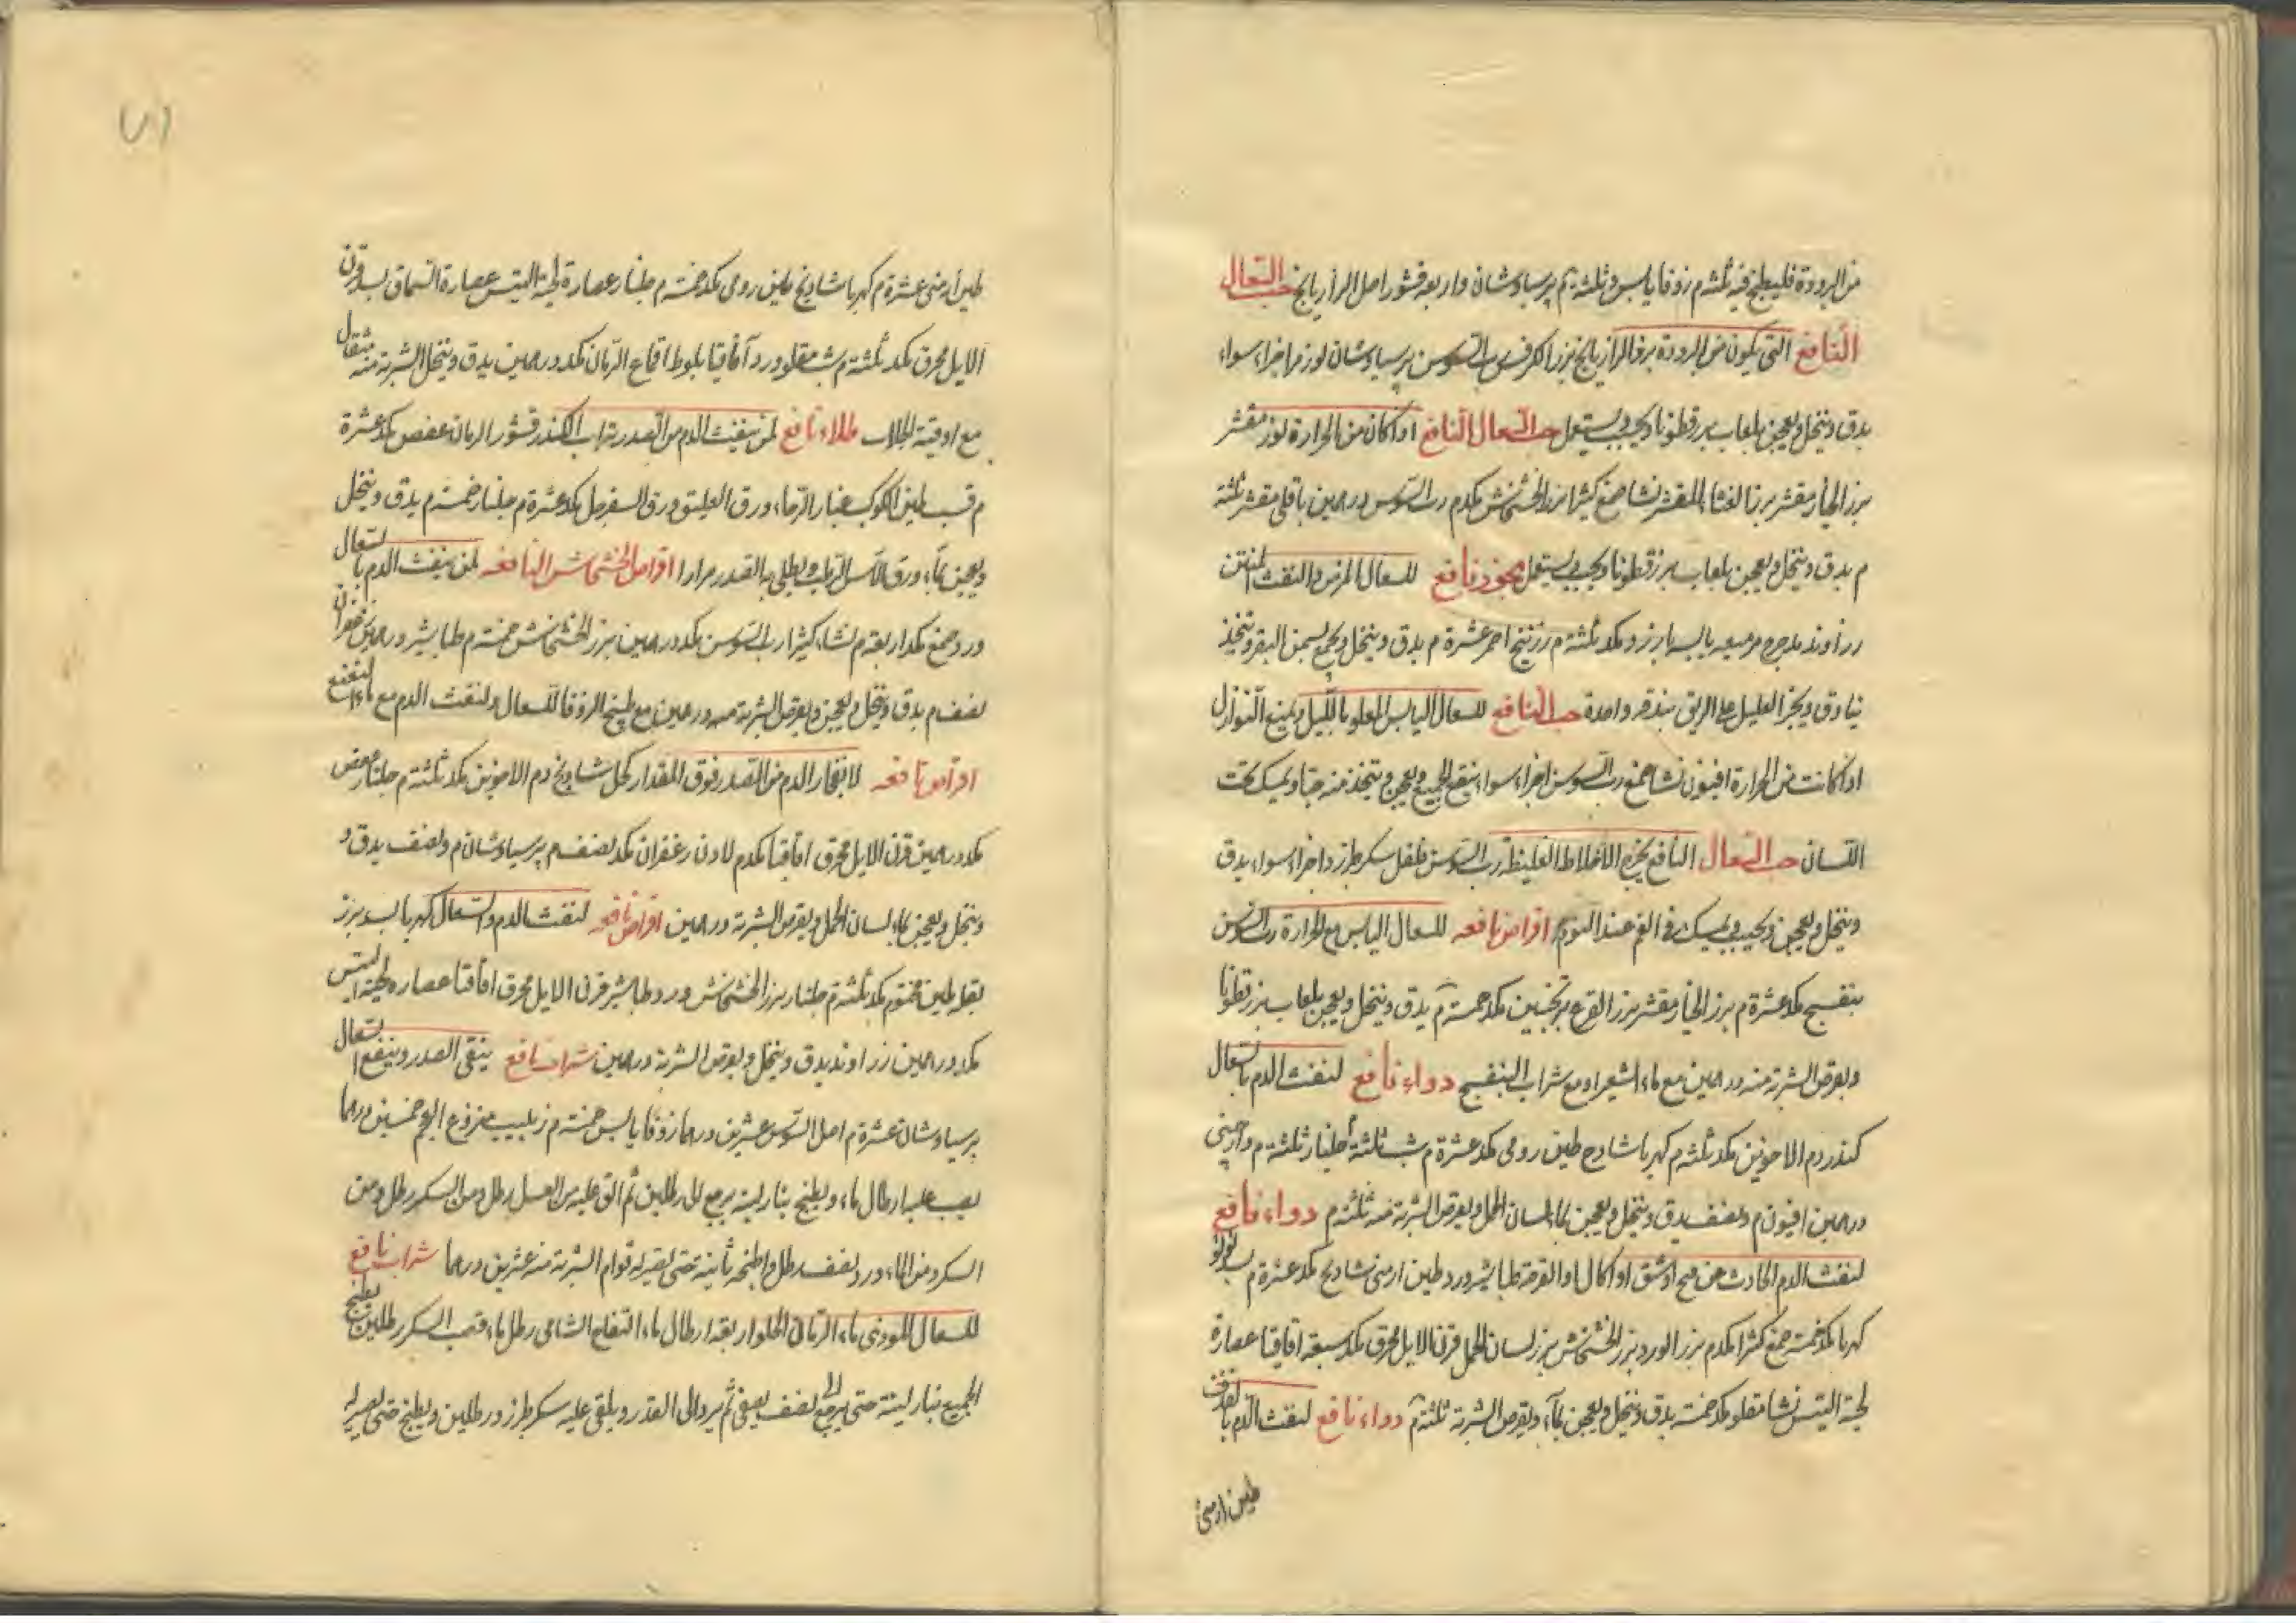 من البرودة فليطبخ فيه ثلثة م زوفا يابس وثلثة م برسياوشان واربعة قشور اصل الرازيانج حب السعال
النافع التي يكون من البرودة بزر الرازيانج بزر الكرفس رب السوس برسياوشان لوز مر اجزاء سواء
يدق وينخل ويعجن بلعاب بزرقطونا ويحبب ويستعمل حب السعال النافع اذا كان من الحرارة لوز مقشر
بزر الخيار مقشر بزر القثاء المقشر نشا صمغ كثيرا بزر الخشخاش مكد م رب السوس درهمين باقلى مقشر ثلثة
م يدق وينخل ويعجن بلعاب بزرقطونا ويحبب ويستعمل بخور نافع للسعال المزمن والنفث المنتن
زراوند مدحرج مر ميعه يابسه بارزد مكد ثلثة م زرنيخ احمر عشرة م يدق وينخل ويجمع بسمن البقر ويتخذ
بنادق ويبخر العليل على الريق ببندقة واحدة حب النافع للسعال اليابس بالليل ويمنع النوازل
اذا كانت من الحرارة افيون نشا صمغ رب السوس اجزاء سواء ينقع الجميع ويعجن ويتخذ منه حبا ويمسك تحت
اللسان حب السعال النافع يخرج الاخلاط الغليظة رب السوس فلفل سكر طبرزد اجزاء سواء يدق
وينخل ويعجن ويحبب ويمسك في الفم عند النوم اقراص نافعه للسعال اليابس مع الحرارة رب السوس
بنفسج مكد عشرة م بزر الخيار مقشر بزر القرع ترنجبين مكد خمسة م يدق وينخل ويعجن بلعاب بزرقطونا
ويقرص الشربة منه درهمين مع ماء الشعير او مع شراب البنفسج دواء نافع لنفث الدم بالسعال
كندر دم الاخوين مكد ثلثة م كهربا شادنج طين رومي مكد عشرة م شب ثلثة جلنار ثلثة م دارچيني
درهمين افيون م ونصف يدق وينخل ويعجن بماء لسان الحمل ويقرص الشربة منه ثلثة م دواء نافع
لنفث الدم الحادث عن فتح او شق او اكال او القرحة طباشير ورد طين ارمني شادنج مكد عشرة م بسد لؤلؤ
كهربا مكد خمسة صمغ كثيرا مكد م بزر الورد بزر الخشخاش بزر لسان الحمل قرن الايل محرق مكد سبعة اقاقيا عصارة
لحية التيس نشا مقلو مكد خمسة يدق وينخل ويعجن بماء ويقرص الشربة ثلثة م دواء نافع لنفث الدم
طين ارمني
طين ارمني عشرة م كهربا شادنج طين رومي مكد خمسة م جلنار عصارة لحية التيس عصارة السماق بسد قرن
الايل محرق مكد ثلثة م شب مقلو ورد اقاقيا بلوط اقماع الرمان مكد درهمين يدق وينخل الشربة منه مثقال
مع اوقية الجلاب طلاء نافع لمن ينفث الدم من الصدر تراب الكندر قشور الرمان عفص مكد عشرة
م طين الكوكب غبار الرحاء ورق العليق ورق السفرجل مكد عشرة م جلنار خمسة م يدق وينخل
ويعجن بماء ورق الآس الرطب ويطلى به الصدر مرارا اقراص الخشخاش النافعه لمن ينفث الدم بالسعال
ورد صمغ مكد اربعة م نشاء كثيرا رب السوس مكد درهمين بزر الخشخاش خمسة م طباشير درهمين زعفران
نصف م يدق وينخل ويعجن ويقرص الشربة منه درهمين مع طبيخ الزوفا للسعال ولنفث الدم مع ماء النعنع
اقراص نافعه لانفجار الدم من الصدر فوق المقدار كحل شادنج دم الاخوين مكد ثلثة م جلنار عفص
مكد درهمين قرن الايل محرق اقاقيا مكد م لادن زعفران مكد نصف م برسياوشان م ونصف يدق و
وينخل ويعجن بماء لسان الحمل ويقرص الشربة درهمين اقراص نافعه لنفث الدم والسعال كهربا بسد بزر
بقله طين مختوم مكد ثلثة م جلنار بزر الخشخاش ورد طباشير قرن الايل محرق اقاقيا عصارة لحية التيس
مكد درهمين زراوند يدق وينخل ويقرص الشربة درهمين شراب نافع ينقي الصدر وينفع السعال
برسياوشان عشرة م اصل السوس عشرين درهما زوفا يابس خمسة م زبيب منزوع العجم خمسين درهما
يصب عليه ارطال ماء ويطبخ بنار لينه يرجع الى رطلين ثم القي عليه من العسل رطل ومن السكر رطل ومن
السكر ومن الماء ورد نصف رطل واطبخه ثانية حتى يصير له قوام الشربة منه عشرين درهما شراب نافع
للسعال المؤذي ماء الرمان الحلو اربعة ارطال ماء التفاح الشامي رطل ماء قصب السكر رطلين يطبخ
الجميع بنار لينة حتى يرجع الى نصف يصفى ثم يرد الى القدر ويلقى عليه سكر طبرزد رطلين ويطبخ حتى يصير له